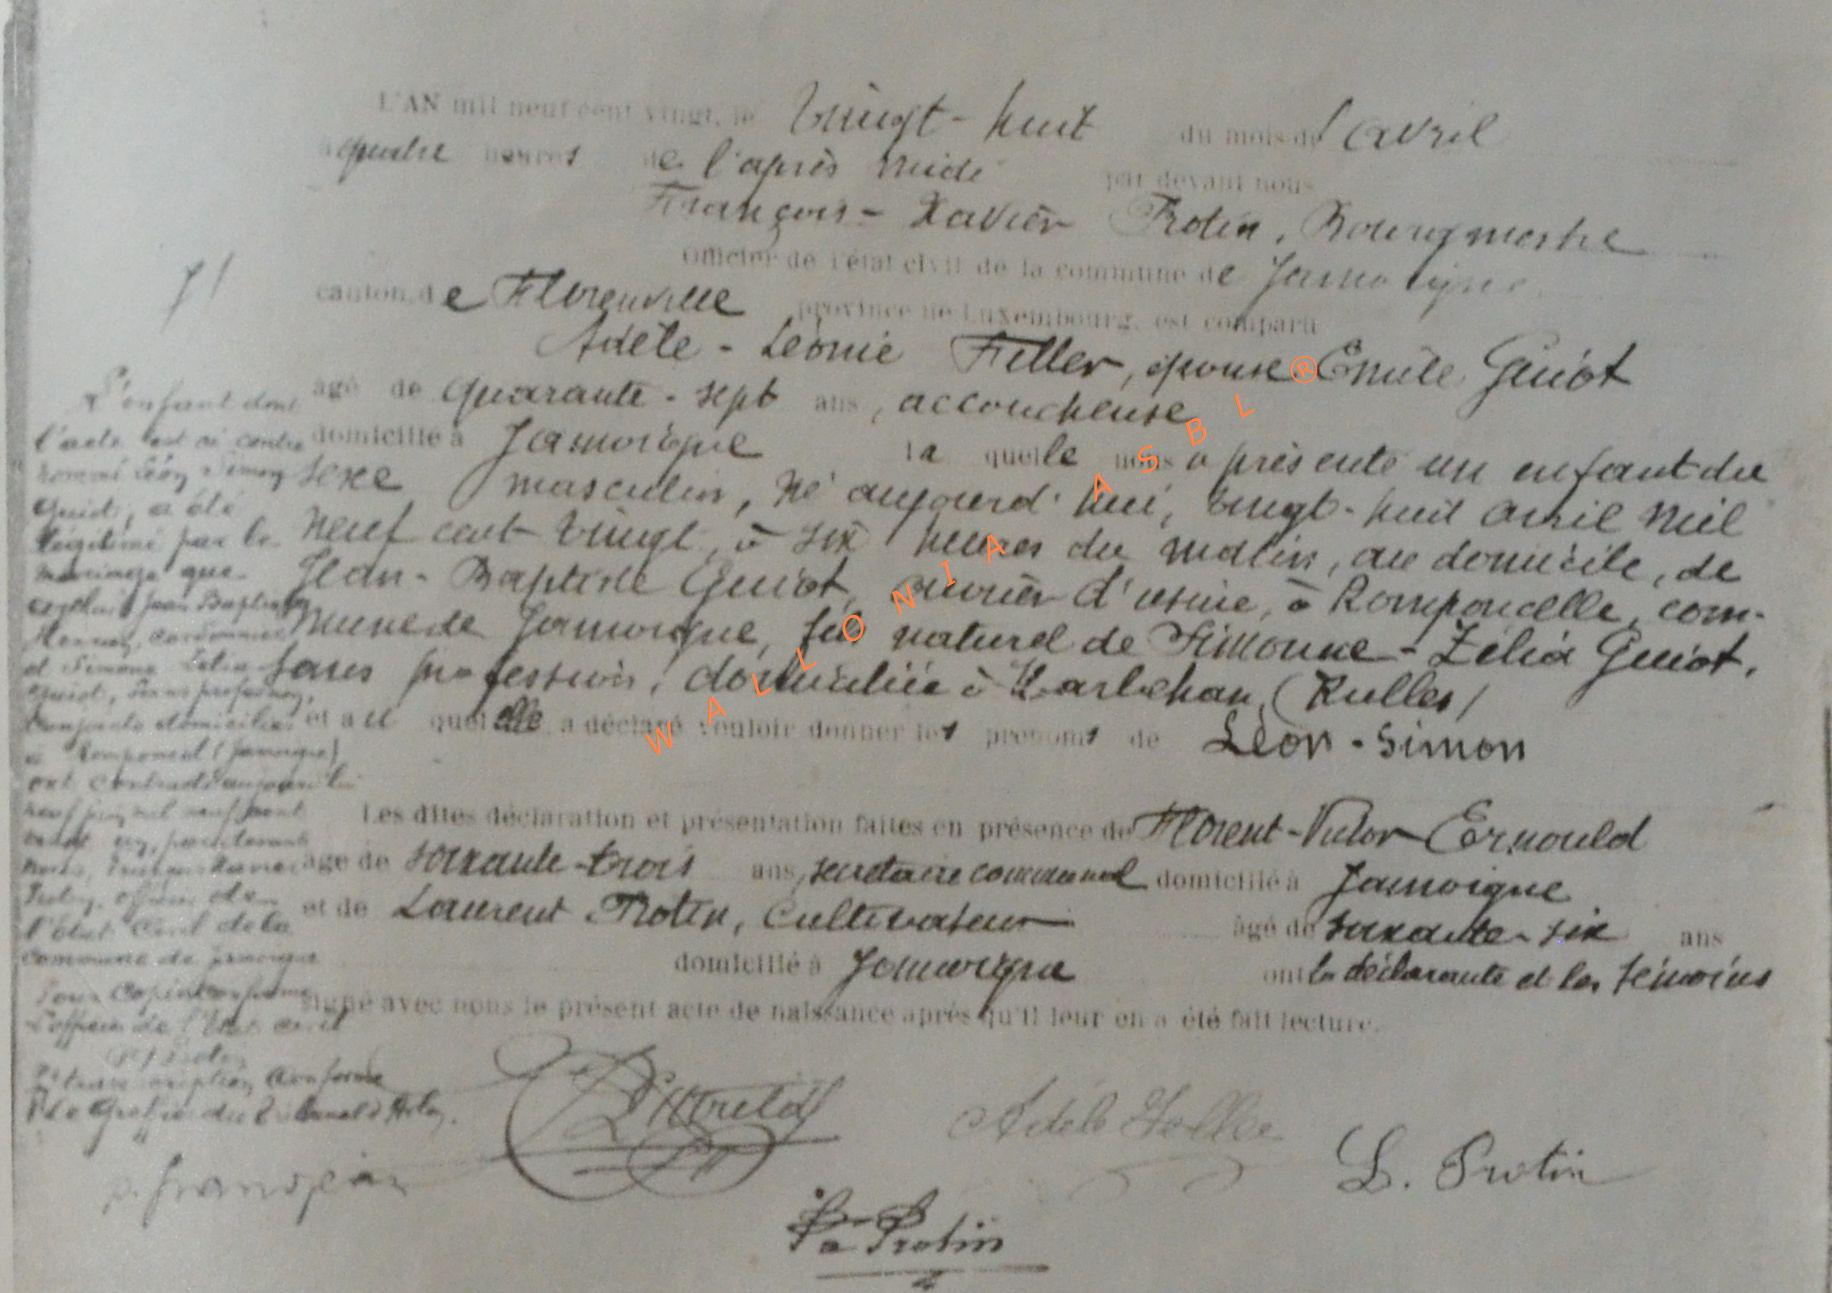 L'AN mil neuf cent vingt, le vingt-huit du mois d'avril
à quatre heures de l'après midi par devant nous
François-Xavier Protin, Bourgmestre
Officier de l'état civil de la commune de Jamoigne
canton de Florenville province de Luxembourg, est comparu
Adèle-Léonie Feller, épouse Emile Guiot
âgé de quarante-sept ans, accoucheuse
domicilié à Jamoigne la quelle nous a présenté un enfant du
sexe masculin, né aujourd'hui, vingt-huit avril mil
neuf cent vingt, à six heures du matin, au domicile, de
Jean-Baptiste Guiot, ouvrier d'usine, à Romponcelle, com-
mune de Jamoigne, fils naturel de Simonne-Zélia Guiot,
sans profession, domiciliée à Marbehan (Rulles)
et au quel elle a déclaré vouloir donner les prénoms de Léon-Simon
Les dites déclaration et présentation faites en présence de Florent-Victor Ernould
âgé de soixante-trois ans, secrétaire communal domicilié à Jamoigne
et de Laurent Protin, Cultivateur âgé de soixante-six ans
domicilié à Jamoigne ont la déclarante et les témoins
signé avec nous le présent acte de naissance après qu'il leur en a été fait lecture.
71
L'enfant dont
l'acte est ci contre
nommé Léon Simon
Guiot, a été
légitimé par le
mariage que
Jean Baptiste
cordonnier
et Simone Zélia
Guiot, sans profession,
conjoints domiciliés
à Romponcel (Jamoigne)
ont contracté aujourd'hui
neuf juin mil neuf cent
vingt un, pardevant
nous, François Xavier
Protin, officier de
l'état Civil de la
commune de Jamoigne
Pour Copie conforme
L'officier de l'Etat civil
(s) Protin
Pr transcription conforme
P le Greffier du Tribunal d'Arlon.
Ernould
Adèle Feller
L. Protin
Fx Protin
WALLONIA ASBL ®